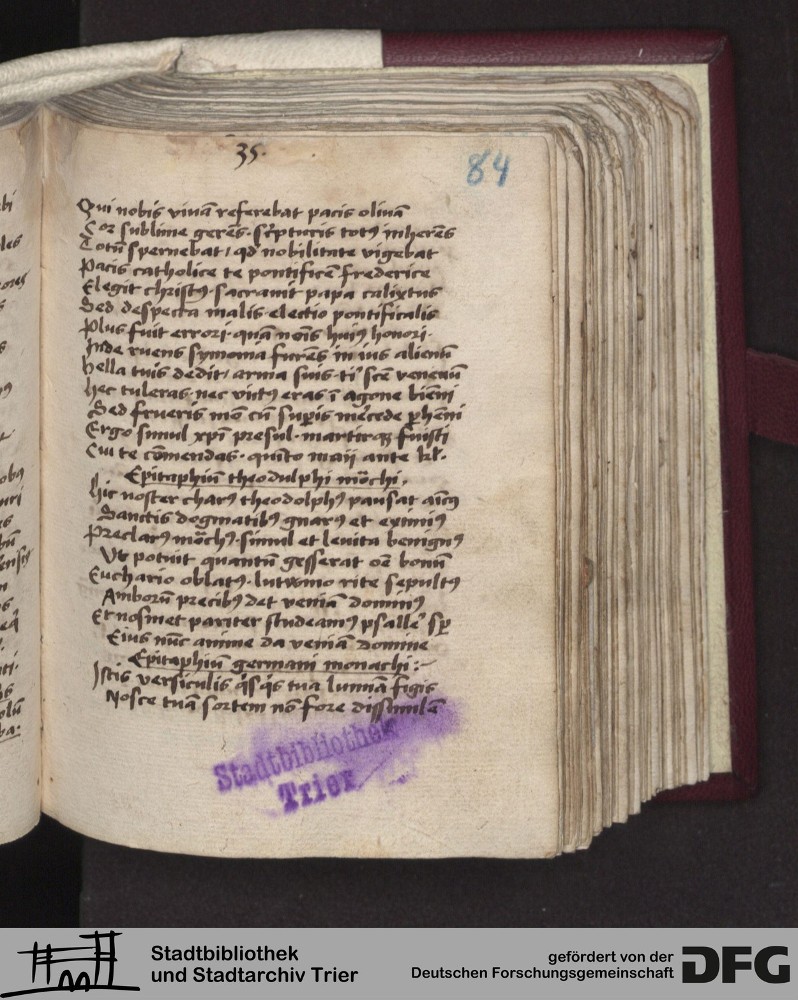 35.
84
Qui nobis vivā referebat pacis olivā
Cor sublime gerēs scripturis totꝯ inherēs
Totū spernebat / qd nobilitate vigebat
Pacis catholice te pontificē frederice
Elegit christꝯ sacravit papa calixtus
Sed despecta malis electio pontificalis
Plus fuit errori quā nōis huiꝯ honori
Inde ruens symonia furēs in ius alienū
bella tuis dedit / arma suis ti scē venenū
hec tuleras nec victꝯ eras ī agone bienni
Sed frueris mō cū supis mercede perhenni
Ergo simul xpi presul martirqꝫ fuisti
Cui te cōmendas quīto maii ante kl.
Epitaphiū theodulphi mōchi.
hic noster charꝯ theodolphꝯ pausat
Sanctis dogmatibꝯ gnarꝯ et eximiꝯ
Preclarꝯ mōchꝯ simul et levita benignꝯ
Ut potuit quantū gesserat oē bonū
Euchario oblatꝯ lutwino rite sepultꝯ
Amborū precibꝯ det veniā dominꝯ
Et nosmet pariter studeamꝯ psallē sp
Eius nūc anime da veniā domine
Epitaphiū germani monachi:-
Istis versiculis qsqs tua lumīa figis
Nosce tuā sortem nō fore dissimilē
Stadtbibliothek
Trier
Stadtbibliothek
und Stadtarchiv Trier
gefördert von der
Deutschen Forschungsgemeinschaft
DFG